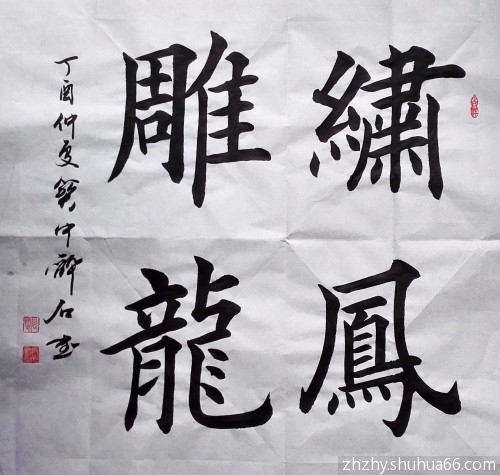 繡鳳
雕龍
丁酉仲夏冀中石书
zhzhy.shuhua66.com